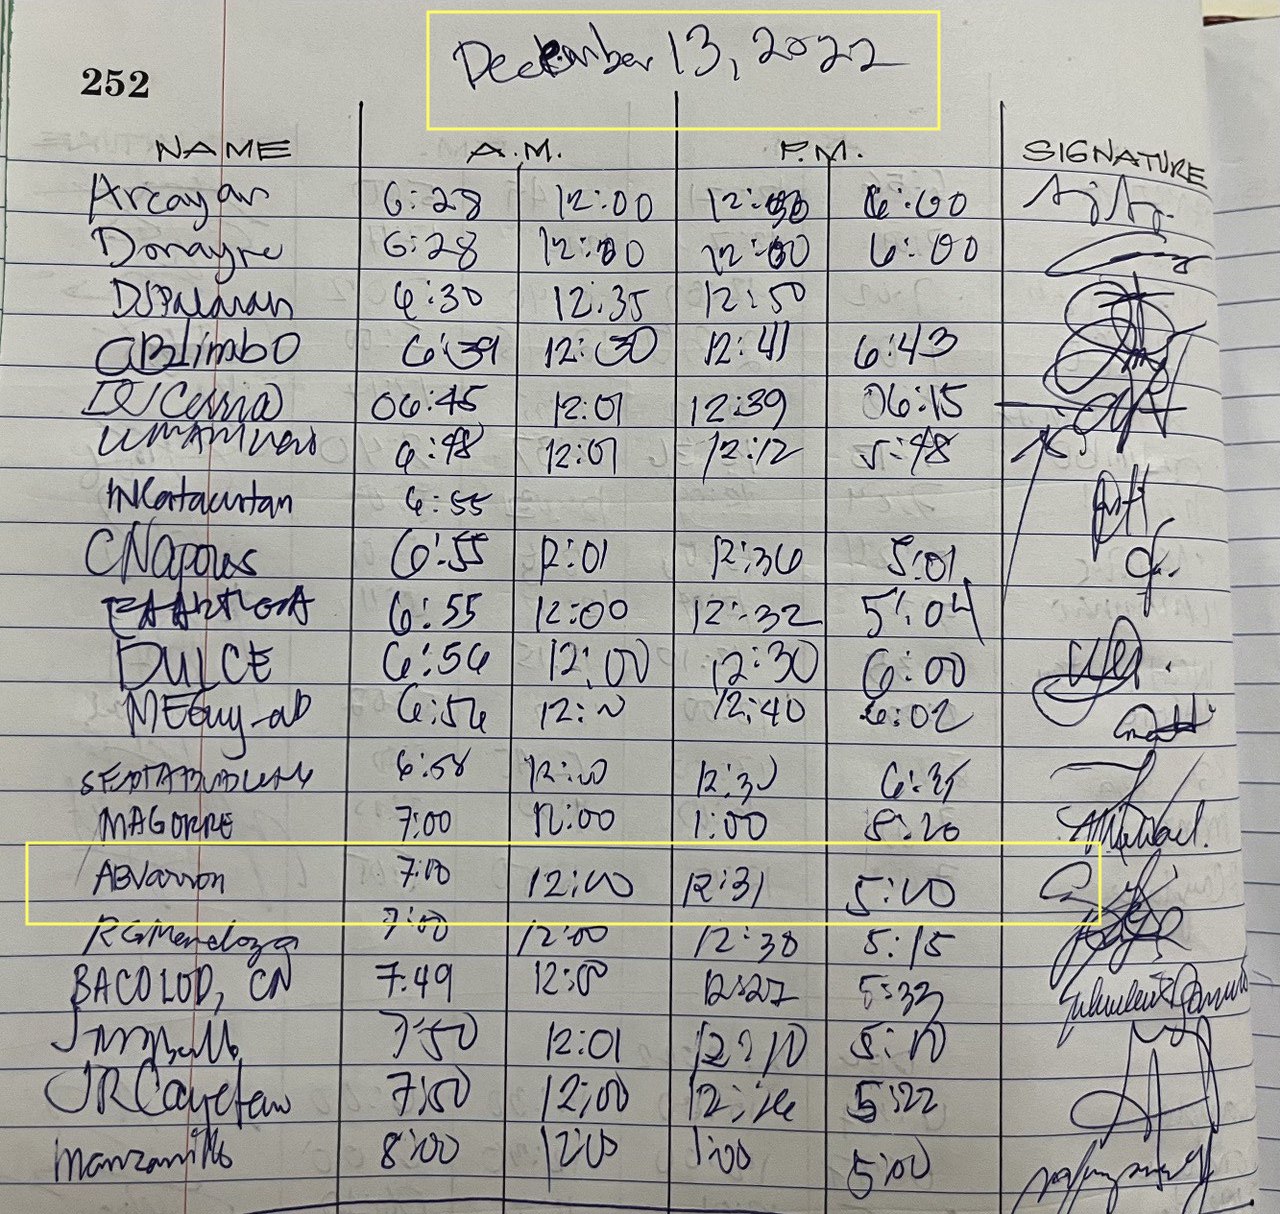 December 13, 2022
252
NAME A.M. P.M. SIGNATURE
Arcayan 6:28 12:00 12:30 6:00
Donayre 6:28 12:00 12:00 6:00
6:30 12:35 12:50
6:39 12:30 12:41 6:43
06:45 12:01 12:39 06:15
6:48 12:07 12:12 5:48
6:55
CNapoles 6:55 12:01 12:36 5:01
6:55 12:00 12:32 5:04
DULCE 6:56 12:00 12:30 6:00
MEGuy-ab 6:56 12:40 6:02
6:58 12:00 12:30
MAGORRE 7:00 12:00 1:00 5:20
ABVarron 7:00 12:00 12:31 5:00
RGMendoza 7:00 12:00 12:38 5:15
BACOLOD, CN 7:49 12:00 12:27 5:33
7:50 12:01 12:10 5:10
JRCayetano 7:50 12:00 12:14 5:22
Manzanillo 8:00 12:00 1:00 5:00